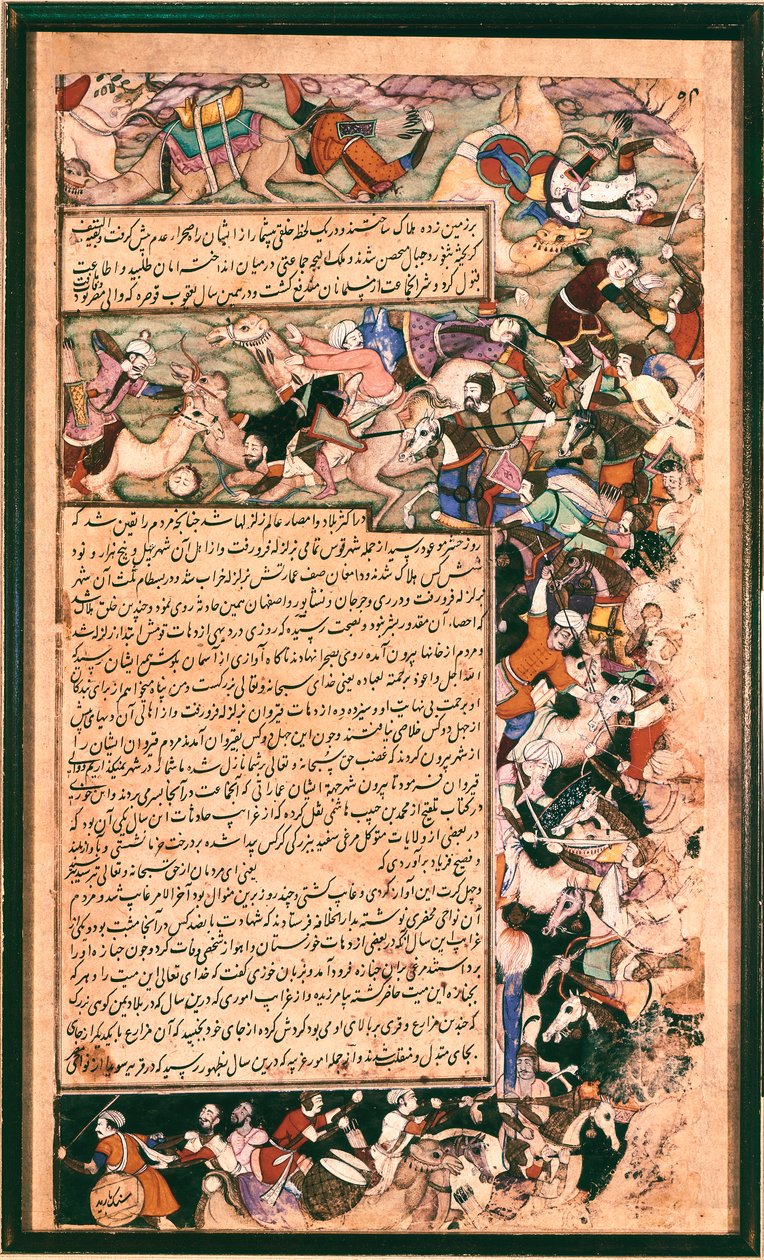 بر زمین زده هلاک ساختند و در یک لحظه خلقی بیشمار از ایشان راه صحرای عدم پیش گرفت و بقیة السیف
گریخته شدند و ملک ایشان با جماعتی در میان انداخته امان طلبید و اطاعت
قبول کرد و شر آنجماعت از مسلمانان مندفع گشت و در همین سال یعقوب قوصره که والی مصر بود
در اکثر بلاد و امصار عالم زلزلها شد چنانچه مردم را یقین شد که
روز حشر موعود رسید از جمله شهر قومس تمامی بزلزله فرو رفت و از اهل آن شهر چهل و پنج هزار و نود
شش کس هلاک شدند و دامغان نصف عمارتش بزلزله خراب شد و در بسطام ثلث آن شهر
بزلزله فرو رفت و در ری و جرجان و نشابور و اصفهان همین حادثه روی نمود و چندین خلق هلاک شد
که احصاء آن مقدور بشر نبود و بصحت رسیده که روزی در دیهی از دهات قومش ابتدا زلزله شد
و مردم از خانها بیرون آمده روی بصحرا نهادند ناگاه آوازی از آسمان بگوش ایشان رسید که
الله اجل واعود برحمته لعباده یعنی خدای سبحانه و تعالی بزرگست
او برحمت بی نهایت او و سیزده ده از دهات قیروان بزلزله فرو رفت و از اهالی آن دیهای بیش
از چهل دو کس خلاصی نیافتند و چون این چهل دو کس بقیروان آمدند مردم قیروان ایشان را
از شهر بیرون کردند که غضب حق سبحانه و تعالی بر شما نازل شده ما شما را در شهر نمیگذاریم
قیروان فرمود تا بیرون شهر جهة ایشان عماراتی که آنجماعت در آنجا بسر می بردند و ابن جوزی
در کتاب تلقیح از محمد بن حبیب هاشمی نقل کرده که از غرایب حادثات این سال یکی آن بود که
در بعضی از ولایات متوکل مرغی سفید بزرگتر از کرکس پیدا شده بر درخت خرما نشستی و بآواز بلند
و فصیح فریاد برآوردی که یعنی ای مردمان از حق سبحانه و تعالی بترسید
و چهل کرت این آواز کردی و غایب گشتی و چند روز برین منوال بود آخر الامر غایب شد و مردم
آن نواحی محضری نوشته بدار الخلافه فرستادند که شهادت پانصد کس در آنجا مثبت بود و یکی از
غرایب این سال آنکه در بعضی از دهات خوزستان و اهواز شخصی وفات کرد و چون جنازه او را
برداشتند مرغی بران جنازه فرود آمد و بزبان خوزی گفت که خدای تعالی این میت را و هر که
بجنازه این میت حاضر گشته بیامرزید و از غرایب اموری که درین سال که در بلاد یمن کوهی بزرگ
که چندین مزارع و قری بر بالای او می بود گردش کرده از جای خود بجنبید که آن مزارع با یکدیگر از جای
بجای متبدل و منقلب شدند و از جمله امور غریبه که درین سال بظهور رسید که در قریه سویدا از نواحی